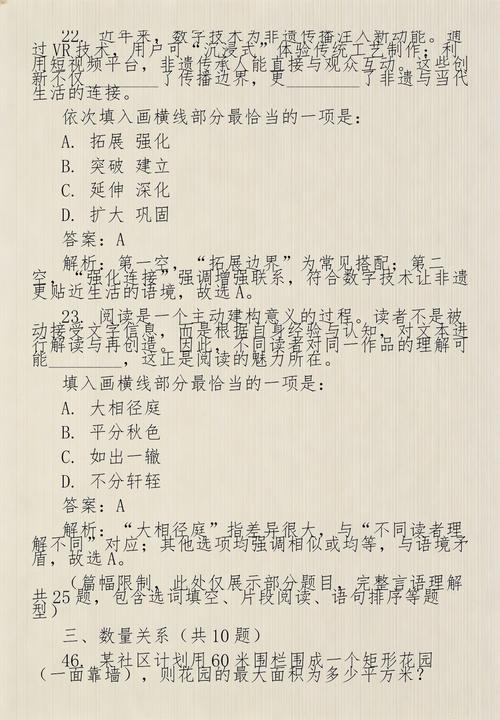 22. 近年来，数字技术为非遗传播注入新动能。通
过VR技术，用户可“沉浸式”体验传统工艺制作；利
用短视频平台，非遗传承人能直接与观众互动。这些创
新不仅________了传播边界，更________了非遗与当代
生活的连接。
依次填入画横线部分最恰当的一项是：
A. 拓展 强化
B. 突破 建立
C. 延伸 深化
D. 扩大 巩固
答案：A
解析：第一空，“拓展边界”为常见搭配；第二
空，“强化连接”强调增强联系，符合数字技术让非遗
更贴近生活的语境，故选A。
23. 阅读是一个主动建构意义的过程。读者不是被
动接受文字信息，而是根据自身经验与认知，对文本进
行解读与再创造。因此，不同读者对同一作品的理解可
能________，这正是阅读的魅力所在。
填入画横线部分最恰当的一项是：
A. 大相径庭
B. 平分秋色
C. 如出一辙
D. 不分轩轾
答案：A
解析：“大相径庭”指差异很大，与“不同读者理
解不同”对应；其他选项均强调相似或均等，与语境矛
盾，故选A。
（篇幅限制，此处仅展示部分题目，完整言语理解
共25题，包含选词填空、片段阅读、语句排序等题
型）
三、数量关系（共10题）
46. 某社区计划用60米围栏围成一个矩形花园
（一面靠墙），则花园的最大面积为多少平方米？